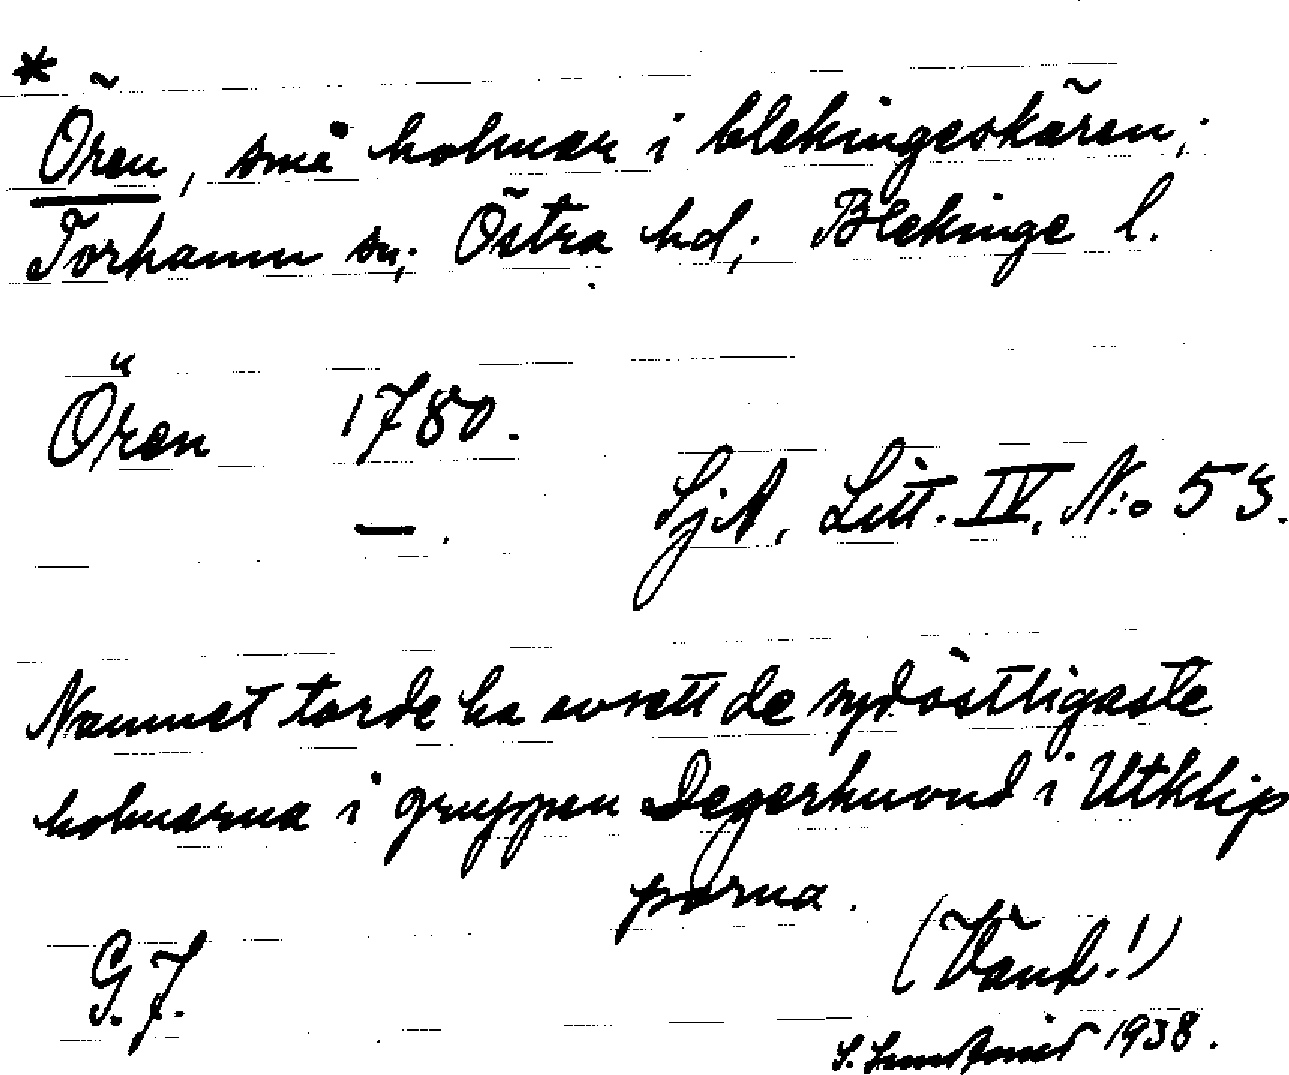 *
Ören, små holmar i Blekingeskären;
Torhamn sn; Östra hd; Blekinge l.
Ören 1780.
— . SjA, Litt. IV, N:o 53.
Namnet torde ha avsett de sydöstligaste
holmarna i gruppen Degerhuvud i Utklip
porna.
(Vänd!)
G. J.
S. 1938.